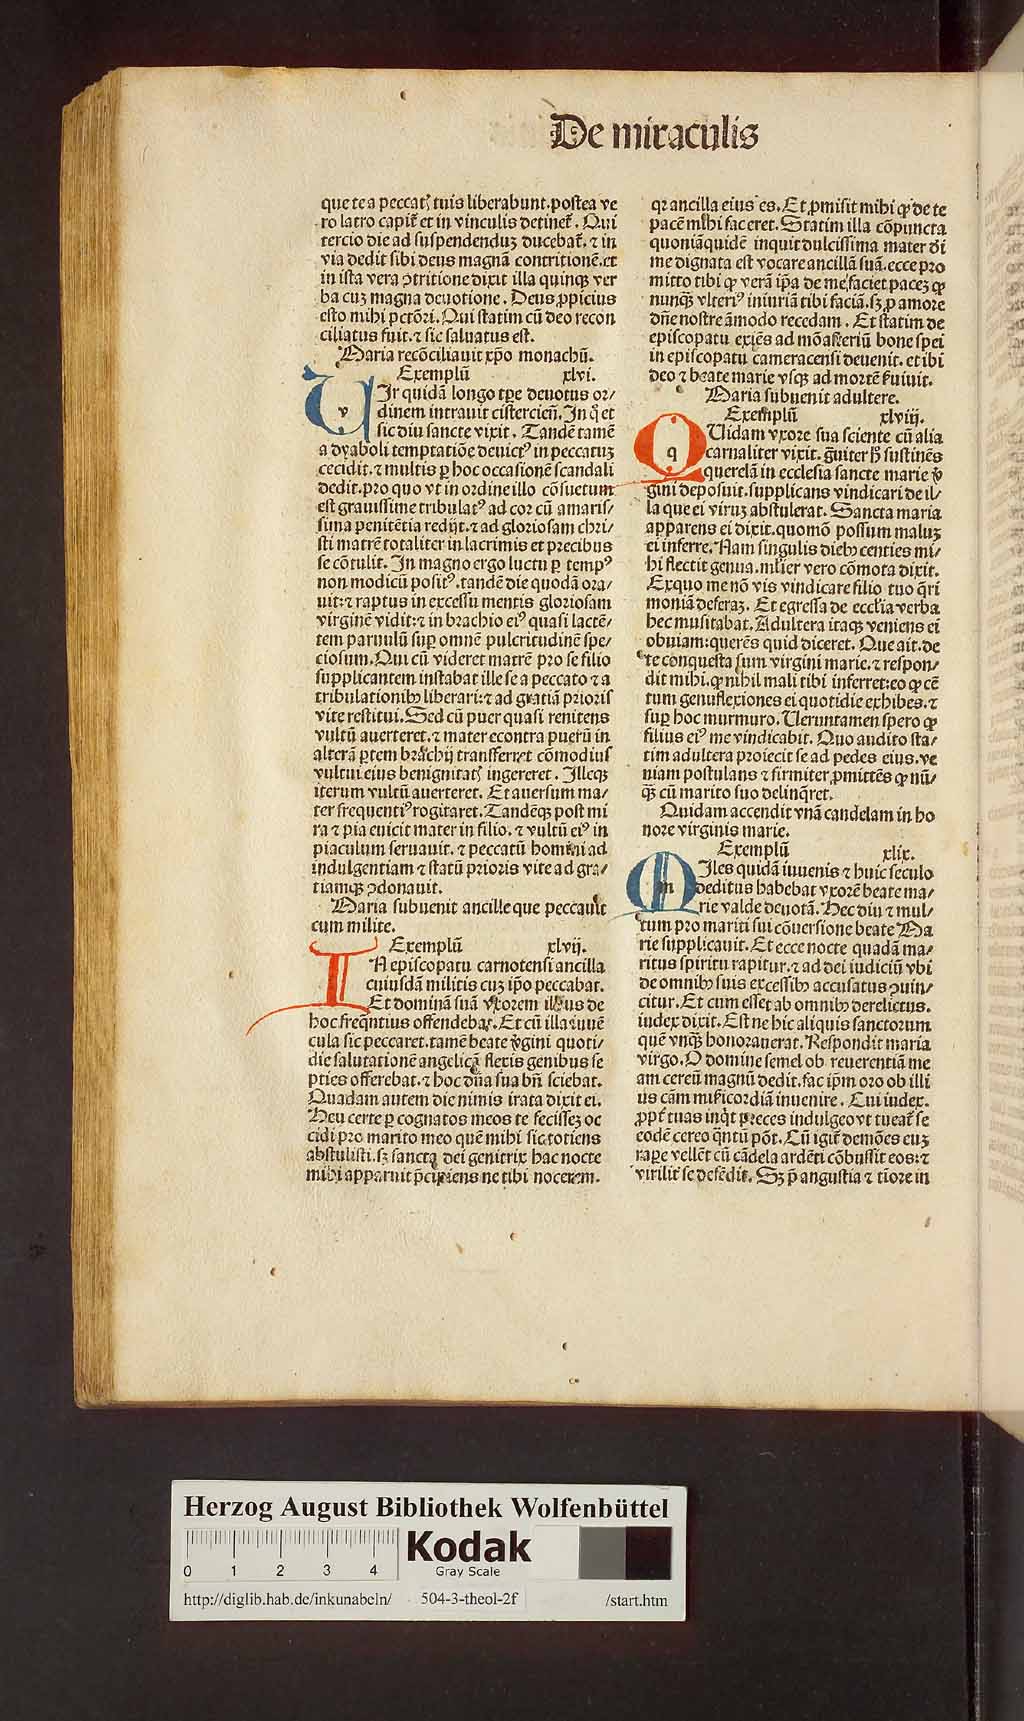 De miraculis
que te a peccatꝭ tuis liberabunt. postea ve
ro latro capit̄ et in vinculis detinet̄. Qui
tercio die ad suspendenduꝫ ducebat̄. ⁊ in
via dedit sibi deus magnā contritionē. et
in ista vera ↄtritione dixit illa quinqꝫ ver
ba cuꝫ magna deuotione. Deus ꝓpicius
esto mihi pctōri. Qui statim cū deo recon
ciliatus fuit. ⁊ sic saluatus est.
Maria recōciliauit xp̄o monachū.
Exemplū xlvi.
VIr quidā longo tꝑe deuotus or/
dinem intrauit cisterciēn̄. In q̄ et
sic diu sancte vixit. Tandē tamē
a dyaboli temptatiōe deuictꝰ in peccatuꝫ
cecidit. ⁊ multis ꝑ hoc occasionē scandali
dedit. pro quo vt in ordine illo cōsuetum
est grauissime tribulatꝰ ad cor cū amaris/
sima penitētia redijt. ⁊ ad gloriosam chri/
sti matrē totaliter in lacrimis et precibus
se cōtulit. In magno ergo luctu ꝑ tempꝰ
non modicū positꝰ. tandē die quodā ora/
uit: ⁊ raptus in excessu mentis gloriosam
virginē vidit: ⁊ in brachio eiꝰ quasi lactē/
tem paruulū suꝑ omnē pulcritudinē spe/
ciosum. Qui cū videret matrē pro se filio
supplicantem instabat ille se a peccato ⁊ a
tribulationibꝰ liberari: ⁊ ad gratiā prioris
vite restitui. Sed cū puer quasi renitens
vultū auerteret. ⁊ mater econtra puerū in
alterā ꝑtem brachij transferret cōmodius
vultui eius benignitatꝭ ingereret. Illeqꝫ
iterum vultū auerteret. Et auersum ma/
ter frequentiꝰ rogitaret. Tandēqꝫ post mi
ra ⁊ pia euicit mater in filio. ⁊ vultū eiꝰ in
piaculum seruauit. ⁊ peccatū homini ad
indulgentiam ⁊ statū prioris vite ad gra/
tiamqꝫ ↄdonauit.
Maria subuenit ancille que peccauit
cum milite.
Exemplū xlvij.
IN episcopatu carnotensi ancilla
cuiusdā militis cuꝫ ip̄o peccabat.
Et dominā suā vxorem illius de
hoc freq̄ntius offendebat. Et cū illa iuuē
cula sic peccaret. tamē beate v̄gini quoti/
die salutationē angelicā flexis genibus se
pties offerebat. ⁊ hoc dn̄a sua bn̄ sciebat.
Quadam autem die nimis irata dixit ei.
Heu certe ꝑ cognatos meos te fecisseꝫ oc
cidi pro marito meo quē mihi sic totiens
abstulisti. sꝫ sancta dei genitrix hac nocte
mihi apparuit p̄cipiens ne tibi nocerem.
qꝛ ancilla eius es. Et ꝓmisit mihi ꝙ de te
pacē mihi faceret. Statim illa cōpuncta
quoniāquidē inquit dulcissima mater dei
me dignata est vocare ancillā suā. ecce pro
mitto tibi ꝙ verā ip̄a de me faciet paceꝫ ꝙ
nunqꝫ vlteriꝰ iniuriā tibi faciā. sꝫ ꝓ amore
dn̄e nostre āmodo recedam. Et statim de
episcopatu exiēs ad mōasteriū bone spei
in episcopatu cameracensi deuenit. et ibi
deo ⁊ beate marie vsqꝫ ad mortē ẜuiuit.
Maria subuenit adultere.
Exemplū xlviij.
QUidam vxore sua sciente cū alia
carnaliter vixit. grauiter h̄ sustinēs
querelā in ecclesia sancte marie v̄
gini deposuit. supplicans vindicari de il/
la que ei viruꝫ abstulerat. Sancta maria
apparens ei dixit. quomō possum maluꝫ
ei inferre. Nam singulis diebꝰ centies mi/
hi flectit genua. mlier vero cōmota dixit.
Exquo me nō vis vindicare filio tuo q̄ri
moniā deferaꝫ. Et egressa de eccl̄ia verba
hec musitabat. Adultera itaqꝫ veniens ei
obuiam: querēs quid diceret. Que ait. de
te conquesta sum virgini marie. ⁊ respon/
dit mihi. ꝙ nihil mali tibi inferret: eo ꝙ cē
tum genuflexiones ei quotidie exhibes. ⁊
suꝑ hoc murmuro. Ueruntamen spero ꝙ
filius eiꝰ me vindicabit. Quo audito sta/
tim adultera proiecit se ad pedes eius. ve
niam postulans ⁊ firmiter ꝓmittēs ꝙ nū/
qꝫ cū marito suo delinq̄ret.
Quidam accendit vnā candelam in ho
nore virginis marie.
Exemplū xlix.
MIles quidā iuuenis ⁊ huic seculo
deditus habebat vxorē beate ma/
rie valde deuotā. Hec diu ⁊ mul/
tum pro mariti sui cōuersione beate Ma
rie supplicauit. Et ecce nocte quadā ma/
ritus spiritu rapitur. ⁊ ad dei iudiciū vbi
de omnibꝰ suis excessibꝰ accusatus ↄuin/
citur. Et cum esset ab omnibꝰ derelictus.
iudex dixit. Est ne hic aliquis sanctorum
quē vnqꝫ honorauerat. Respondit maria
virgo. O domine semel ob reuerentiā me
am cereū magnū dedit. fac ip̄m oro ob illi
us cām mīcordiā inuenire. Cui iudex.
ꝓpt̄ tuas inq̄t preces indulgeo vt tueat̄ se
eodē cereo q̄ntū pōt. Cū igit̄ demōes euꝫ
raꝑe vellēt cū cādela ardēti cōbussit eos: ⁊
virilit̄ se defēdit. Sꝫ p̄ angustia ⁊ tiōre in
Herzog August Bibliothek Wolfenbüttel
0 1 2 3 4
Kodak
Gray Scale
http://diglib.hab.de/inkunabeln/ 504-3-theol-2f /start.htm